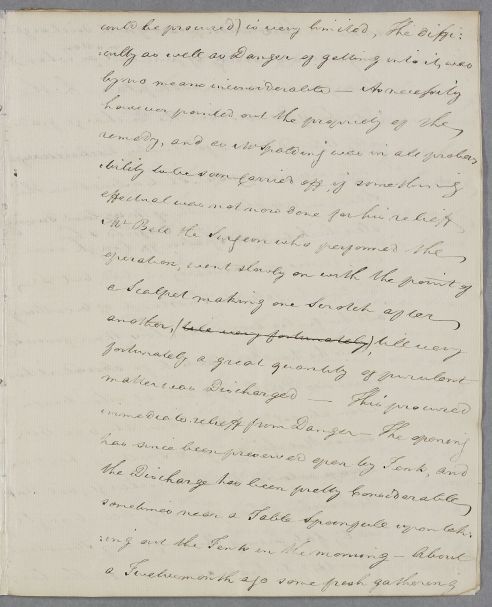 could be procured) is very limited, The diffi:
:culty as well as Danger of getting into it, was
by no means inconsiderable — As necessity
however pointed out the propriety of the
remedy, and as Mr Spalding was in all proba=
:bility to be soon carried off, if something
effectual was not now done for his relieff
Mr Bell the Surgeon who performed the
operation, went slowly on with the point of
a Scalpel making one Scratch after
another, (till very fortunately), till very
fortunately a great quantity of purulent
matter was Discharged — This procured
immediate relieff from Danger — The opening
has since been preserved open by Tents, and
the Discharge has been pretty Considerable,
sometimes near a Table Spoonfull upon tak:
:ing out the Tents in the morning — About
a Twelvemonth ago some fresh gathering